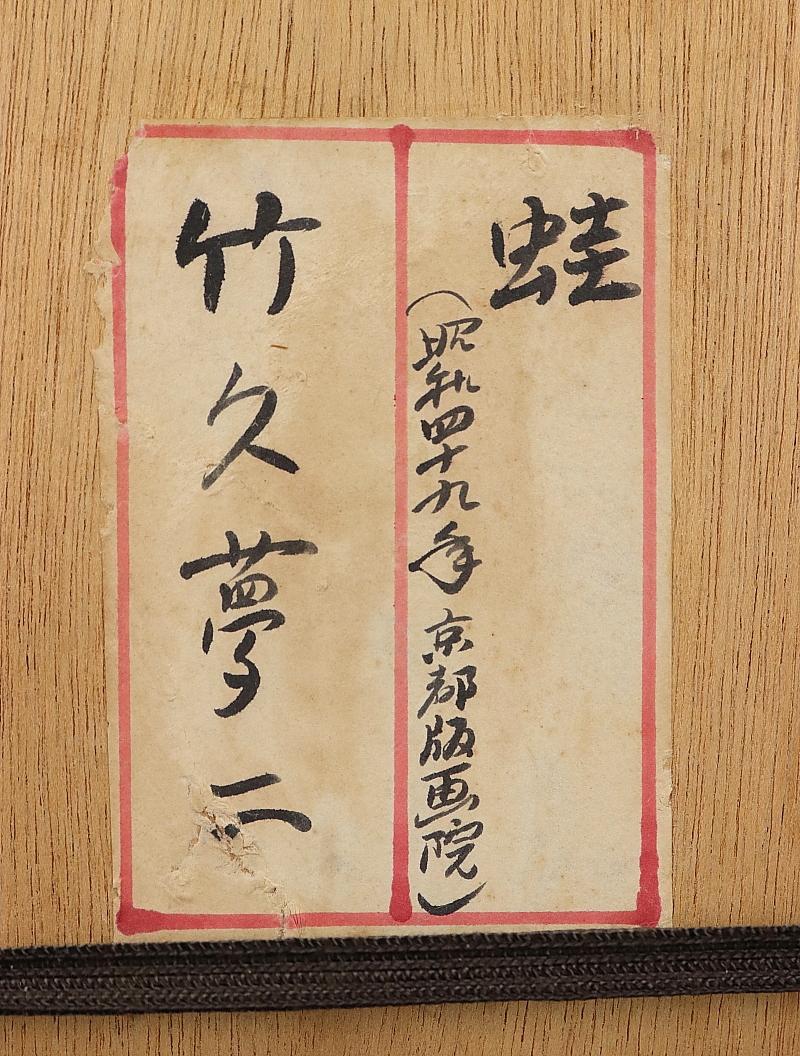 蛙
（昭和四十九年 京都版画院）
竹久夢二